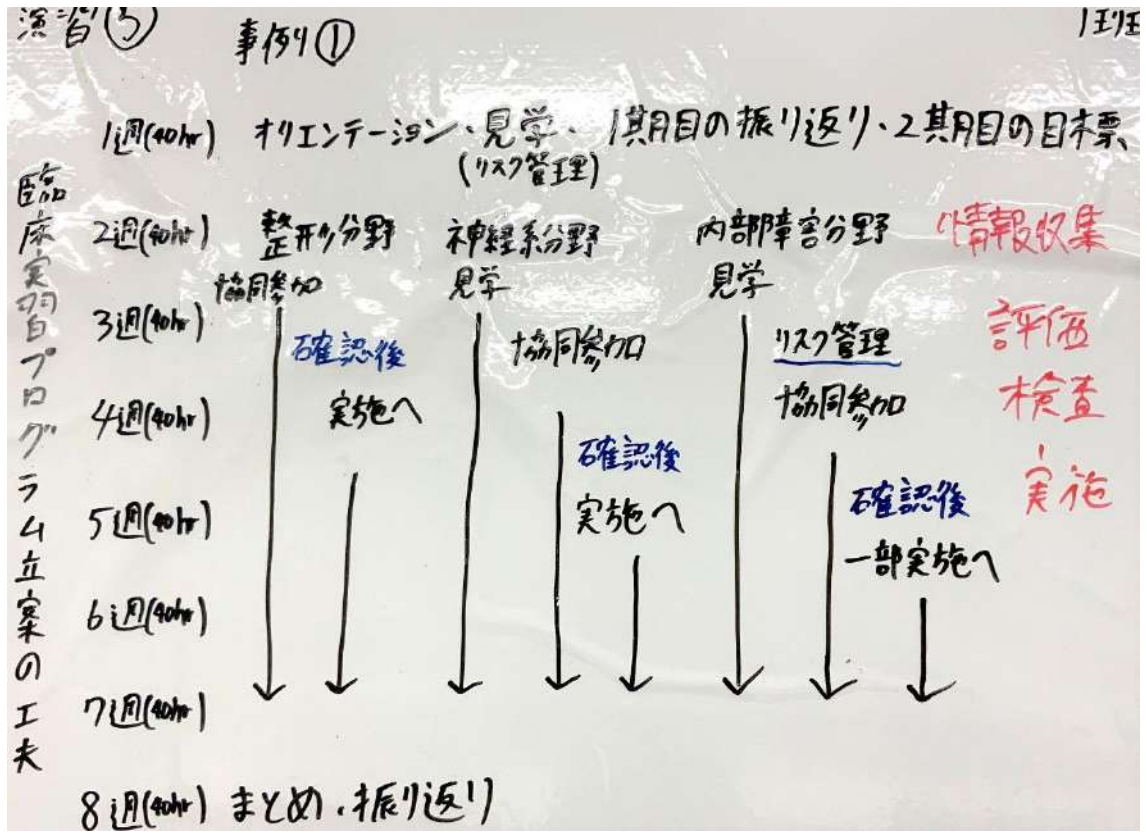 演習③
事例①
1班
臨床実習プログラム立案の工夫
1週(40hr) オリエンテーション・見学・1期目の振り返り・2期目の目標
(リスク管理)
2週(40hr) 整形分野 神経系分野 内部障害分野 情報収集
協同参加 見学 見学
3週(40hr) 確認後 協同参加 リスク管理 評価
4週(40hr) 実施へ 協同参加 検査
確認後
5週(40hr) 実施へ 確認後 実施
一部実施へ
6週(40hr)
7週(40hr)
8週(40hr) まとめ・振り返り